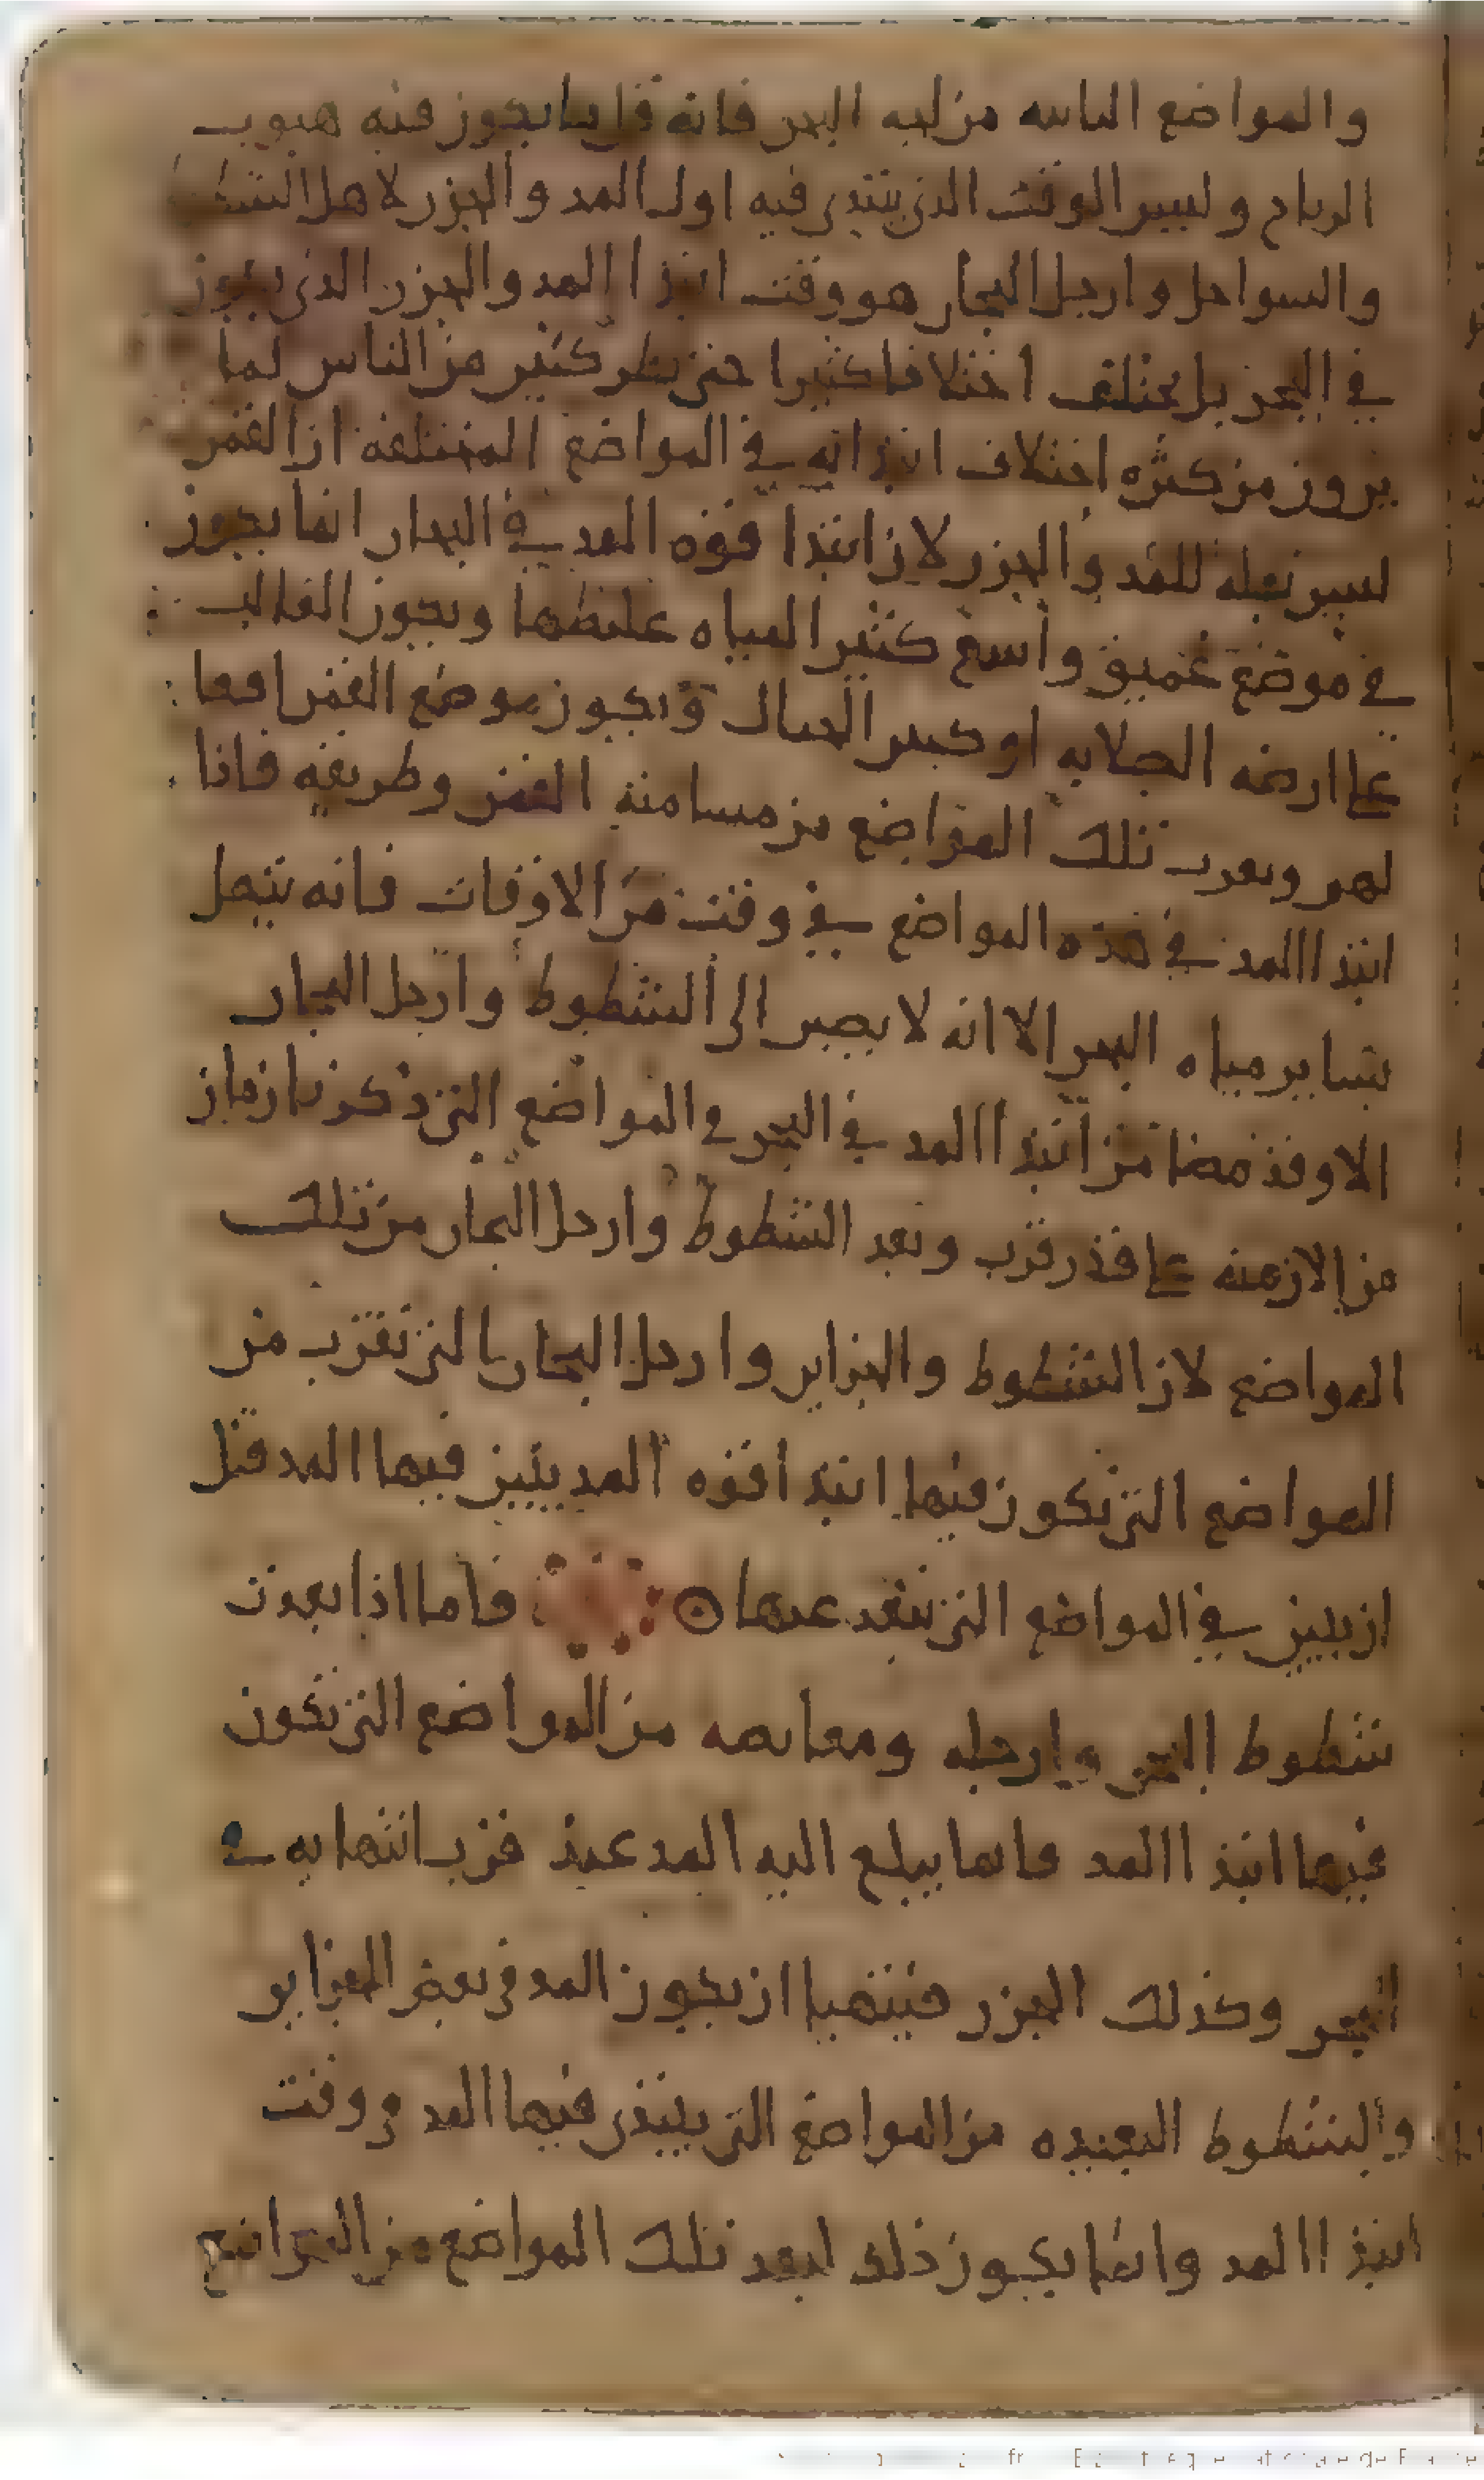 والمواضع النائيه من لجه البحر فانه قل ما يكون فيه هبوب
الرياح وليس الوقت الذى يبتدى فيه اول المد والجزر لاهل الشط
والسواحل وارجل البحار هو وقت ابتدا المد والجزر الذى يكون
في البحر بل يختلف اختلافا كثيرا حتى يظن كثير من الناس لما
يرون من كثره اختلاف ابتدائه في المواضع المختلفه ان القمر
ليس بعله للمد والجزر لان ابتدا قوه المد في البحار انما يكون
في موضع عميق واسع كثير المياه غليظها ويكون الغالب
على ارضه الصلابه او كبير الجبال ويكون موضع القمر افقا
لهم وبقرب تلك المواضع من مسامته القمر وطريقه فاذا
ابتدا المد في هذه المواضع في وقت من الاوقات فانه يتصل
بساير مياه البحر الا انه لا يصير الى الشطوط وارجل البحار
الا وقد مضا من ابتدا المد في البحر في المواضع التى ذكرنا زمان
من الازمنه على قدر قرب وبعد الشطوط وارجل البحار من تلك
المواضع لان الشطوط والجزاير وارجل البحار التى تقرب من
المواضع التى تكون فيها ابتدا قوه المد يتبين فيها المد قبل
ان يتبين في المواضع التى تبعد عنها فاما اذا بعدت
شطوط البحر وارجله ومغايصه من المواضع التى تكون
فيها ابتدا المد فانما يبلغ اليه المد عند قرب انتهايه في
البحر وكذلك الجزر فيتهيا ان يكون المد في بعض الجزاير
والشطوط البعيده من المواضع التى يبتدى فيها المد في وقت
ابتدا المد وانما يكون ذلك لبعد تلك المواضع من المواضع